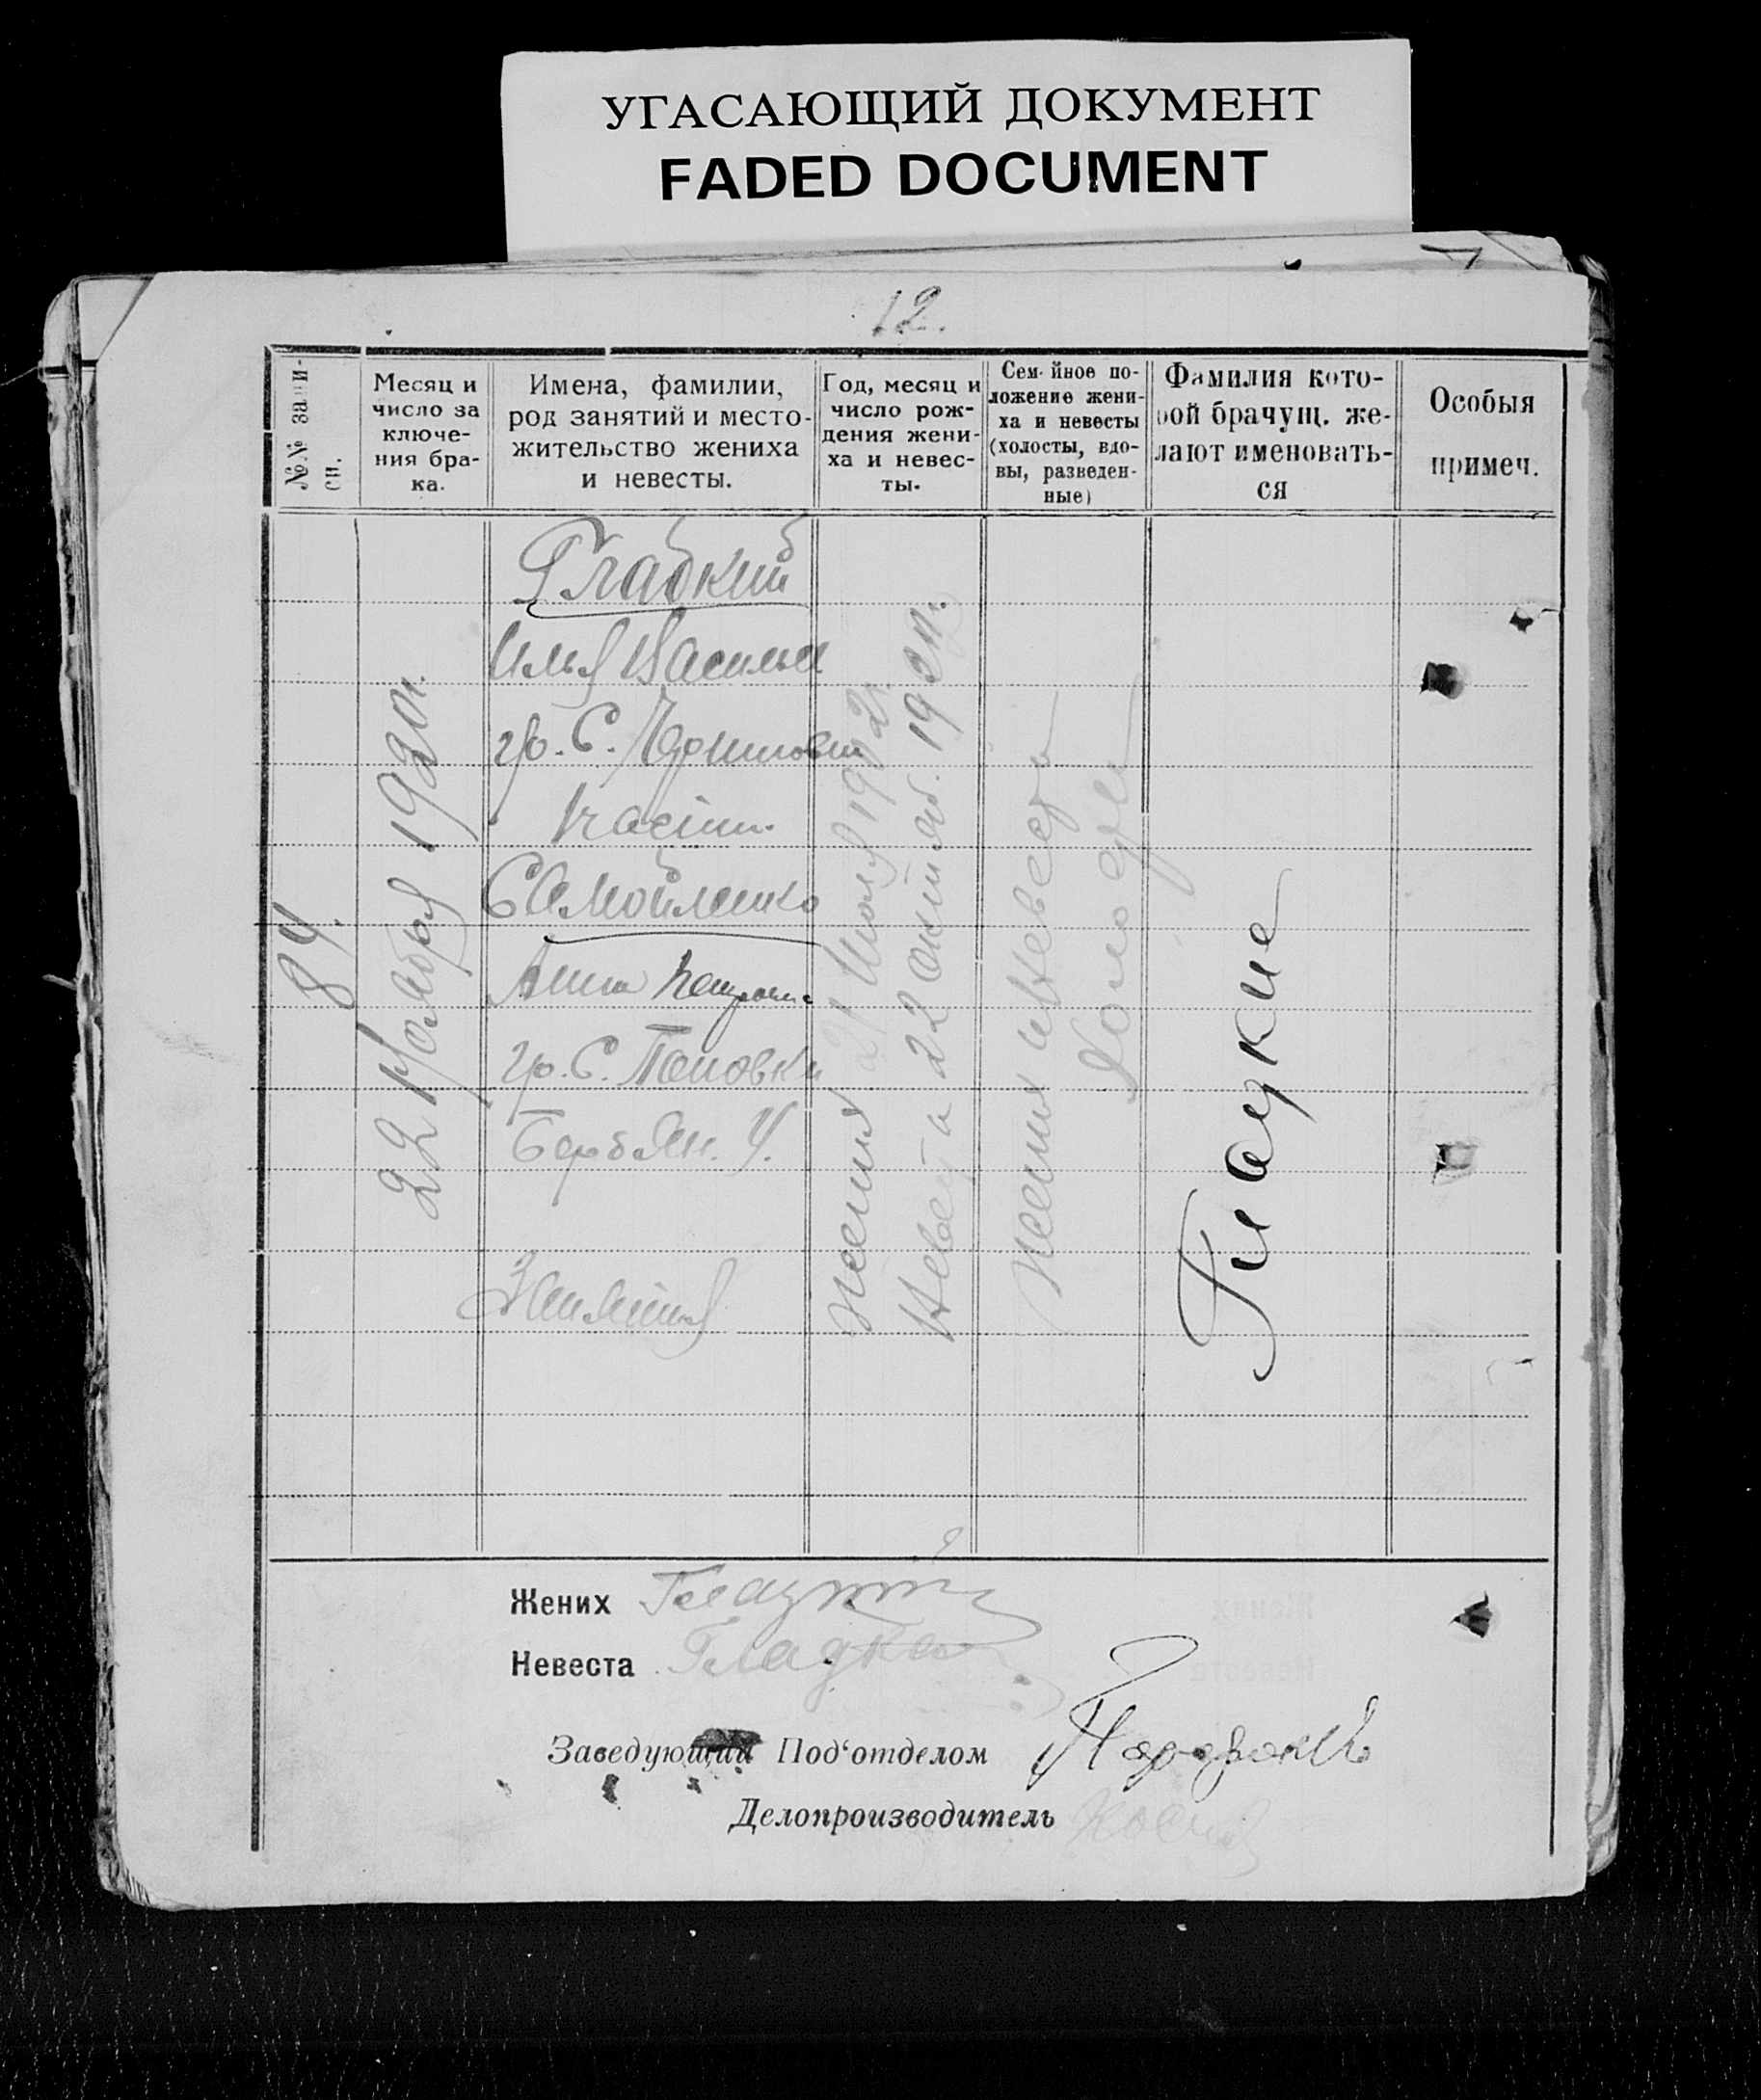 УГАСАЮЩИЙ ДОКУМЕНТ
FADED DOCUMENT
12.
№№ записи.
Месяц и
число за
ключе-
ния бра-
ка.
Имена, фамилии,
род занятий и место-
жительство жениха
и невесты.
Год, месяц и
число рож-
дения жени-
ха и невес-
ты.
Семейное по-
ложение жени-
ха и невесты
(холосты, вдо-
вы, разведен-
ные)
Фамилия кото-
рой брачущ. же-
лают именовать-
ся
Особыя
примеч.
84.
22 Ноября 1920г.
Гладкий
Илья Васильев
гр. С.
Самойленко
Анна
гр. С. Поповки
Жених 21 Июля
Невеста 22 октяб.
Жених и Невеста
Холосты
Гладкие
Жених Гладкий
Невеста Гладкая
Заведующий Под‘отделом
Делопроизводитель